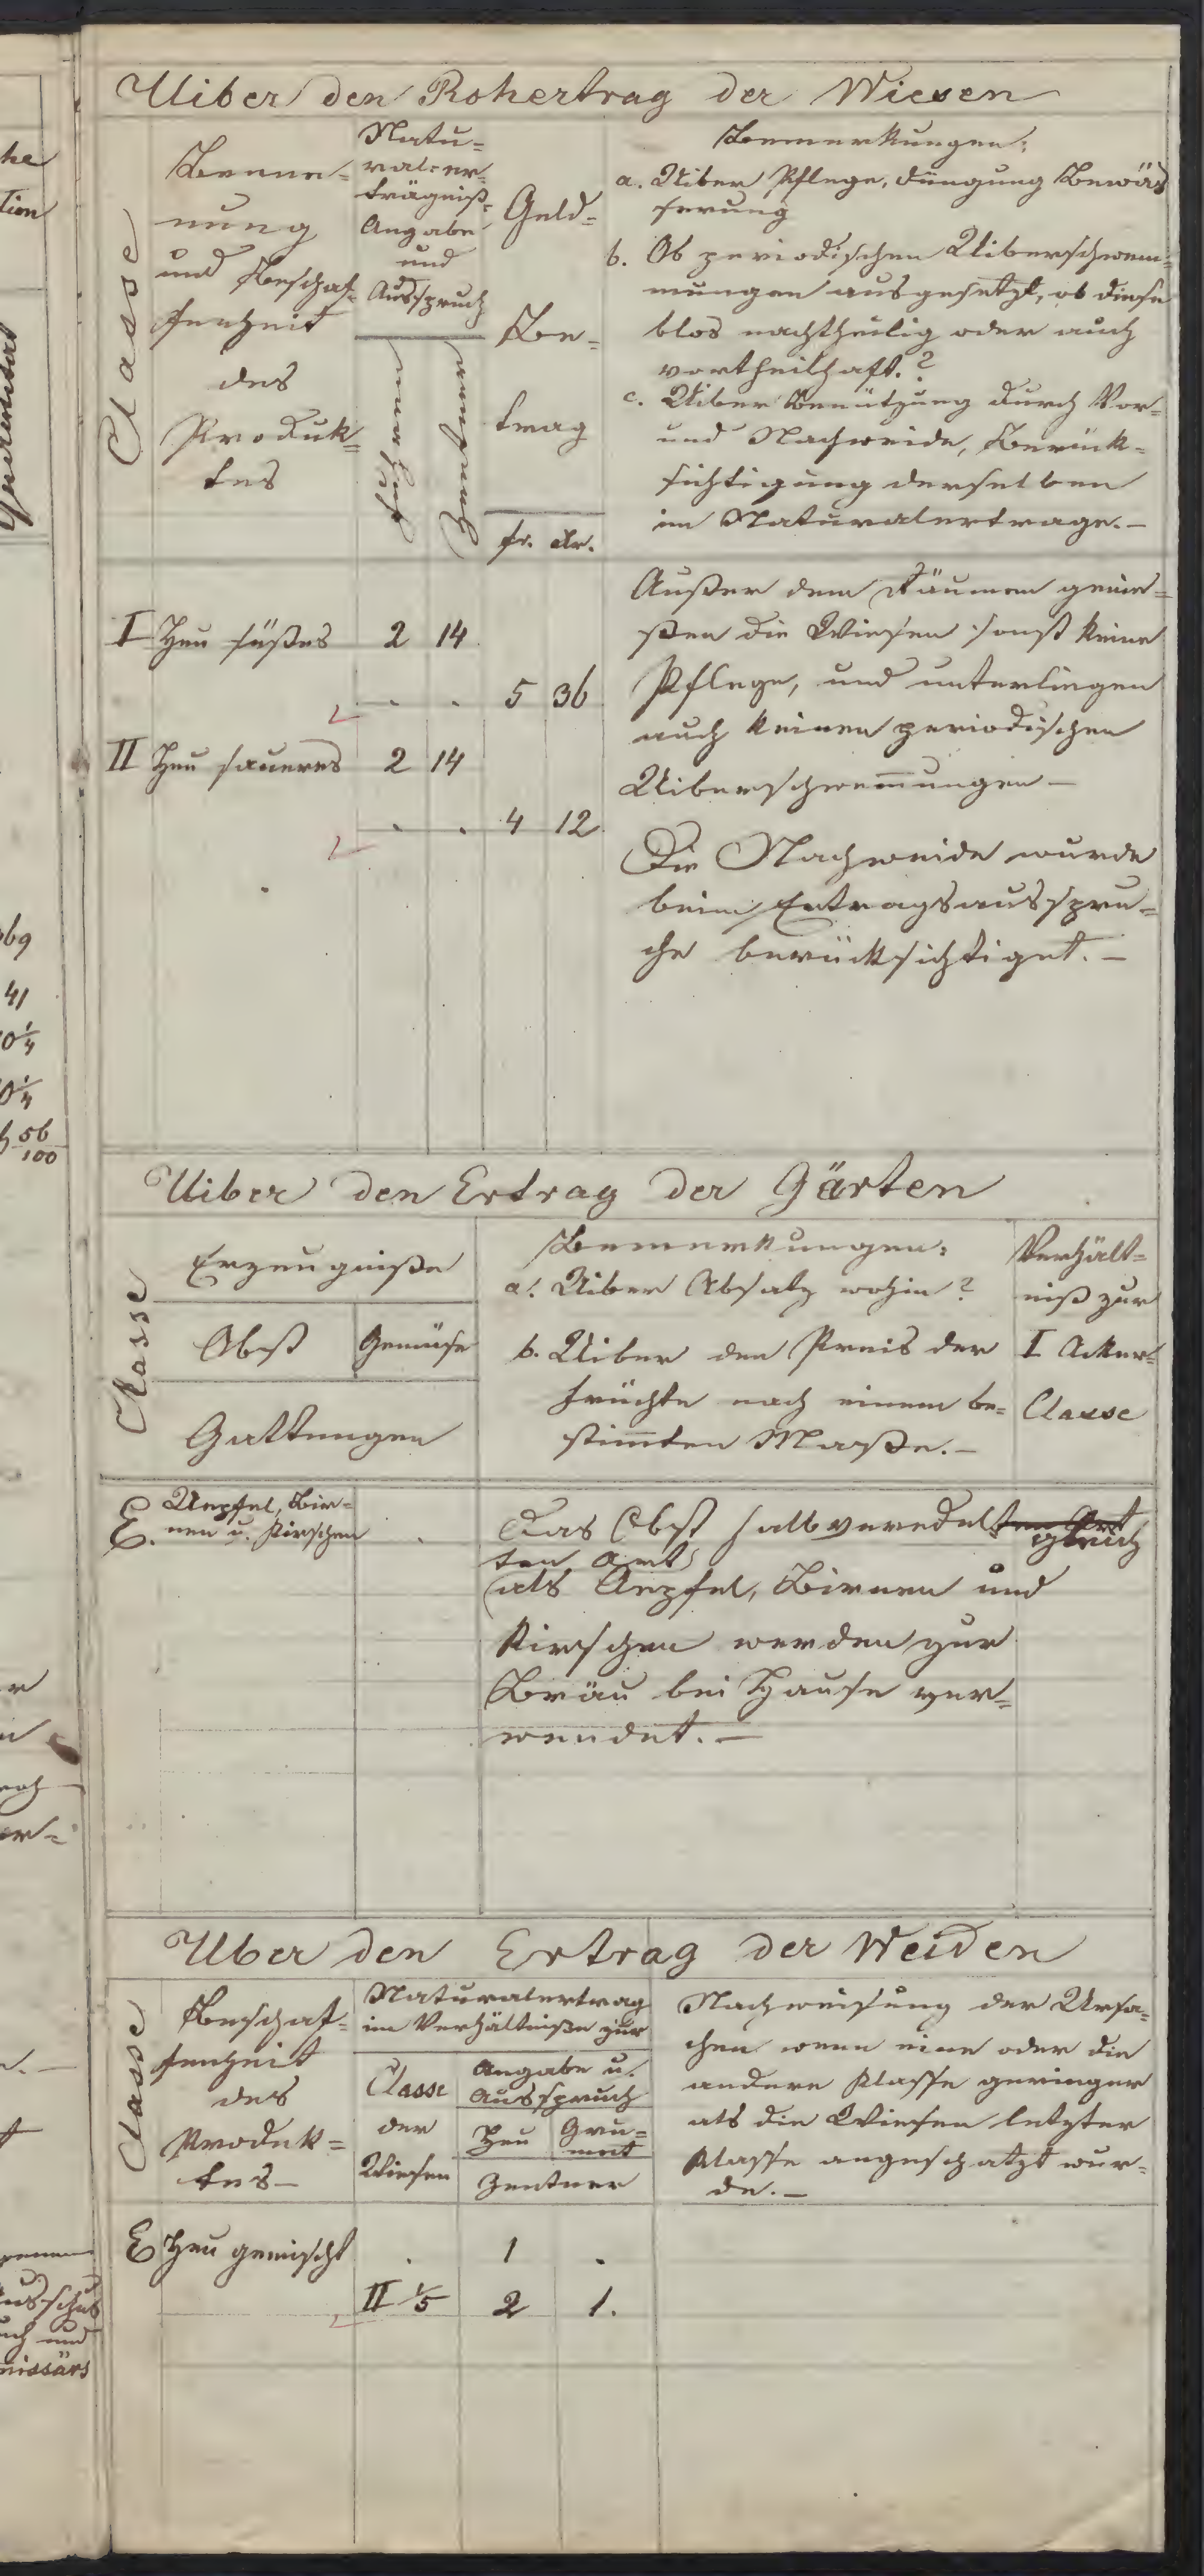 Uiber den Rohertrag der Wiesen
Classe
Benen-
nung
und Beschaf-
fenheit
des
Produk-
tes
Natu-
ral-er-
trägniß-
Angabe
und
Ausspruch
Fuhren
Zentner
Geld-
Be-
trag
fr. xr.
Bemerkungen:
a. Uiber Pflege, Düngung Bewäs
serung
b. Ob periodischen Uiberschwem-
mungen ausgesetzt, ob diese
blos nachtheilig oder auch
vortheilhaft.?
c. Uiber Benützung durch Vor-
und Nachweide, Berück-
sichtigung derselben
im Naturalertrage.-
I Heu süßes 2 14
. . 5 36
II Heu saueres 2 14
. . 4 12
Außer dem Räumen genie-
ßen die Wiesen sonst keine
Pflege, und unterliegen
auch keinen periodischen
Uiberschwem̅ungen -
Die Nachweide wurde
beim Ertragsausspru-
che berücksichtiget. -
Uiber den Ertrag der Gärten
Classe
Erzeugniße
Obst Gemüse
Gattungen
Bemerkungen:
a. Uiber Absatz wohin?
b. Uiber den Preis der
Früchte nach einem be-
stim̅ten Maße.-
Verhält-
niß zur
I Acker-
Classe
E. Aepfel, Bir-
nen u. Kirschen
.
Das Obst halbveredelten Art
gleich
ten Art
als Aepfel, Birnen und
Kirschen werden zur
bei Hause ver-
wendet. -
Uber den Ertrag der Weiden
Classe
Beschaf-
fenheit
des
Produk-
tes -
Naturalertrag
im Verhältniße zur
Classe
der
Wiesen
Angabe u.
Ausspruch
Heu Gru-
met
Zentner
Nachweisung der Ursa-
chen wenn eine oder die
andere Klasse geringer
als die Wiesen letzter
Klasse angeschatzt wur-
de. -
E Heu gemischt . 1 .
II 1/5 2 1.
69
41
0 1/4
0 1/4
56/100